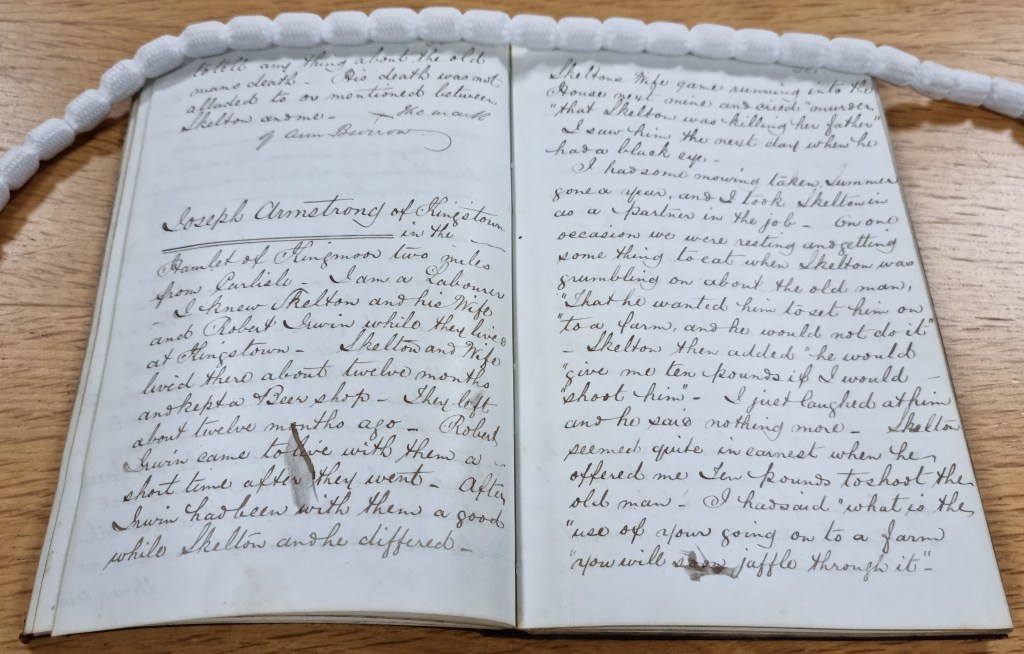 to tell any thing about the old
mans death - His death was not
alluded to or mentioned between
Skelton and me - × the mark
of Ann Burrow
Joseph Armstrong of Kingstown
in the
Hamlet of Kingmoor two miles
from Carlisle - I am a Labourer
- I knew Skelton and his Wife
and Robert Irwin while they lived
at Kingstown - Skelton and Wife
lived there about twelve months
and kept a Beer shop - They left
about twelve months ago - Robert
Irwin came to live with them a
short time after they went - After
Irwin had been with them a good
while Skelton and he differed -
Skeltons Wife came running into the
House next mine and cried "murder,
"that Skelton was killing her father"
I saw him the next day when he
had a black eye -
I had some mowing taken, Summer
gone a year, and I took Skelton in
as a partner in the job - On one
occasion we were resting and getting
some thing to eat when Skelton was
grumbling on about the old man;
"That he wanted him to set him on
"to a farm, and he would not do it"
- Skelton then added "he would
"give me ten pounds if I would
"shoot him" - I just laughed at him
and he said nothing more - Skelton
seemed quite in earnest when he
offered me Ten pounds to shoot the
old man - I had said "what is the
"use of your going on to a farm
"you will soon jaffle through it" -